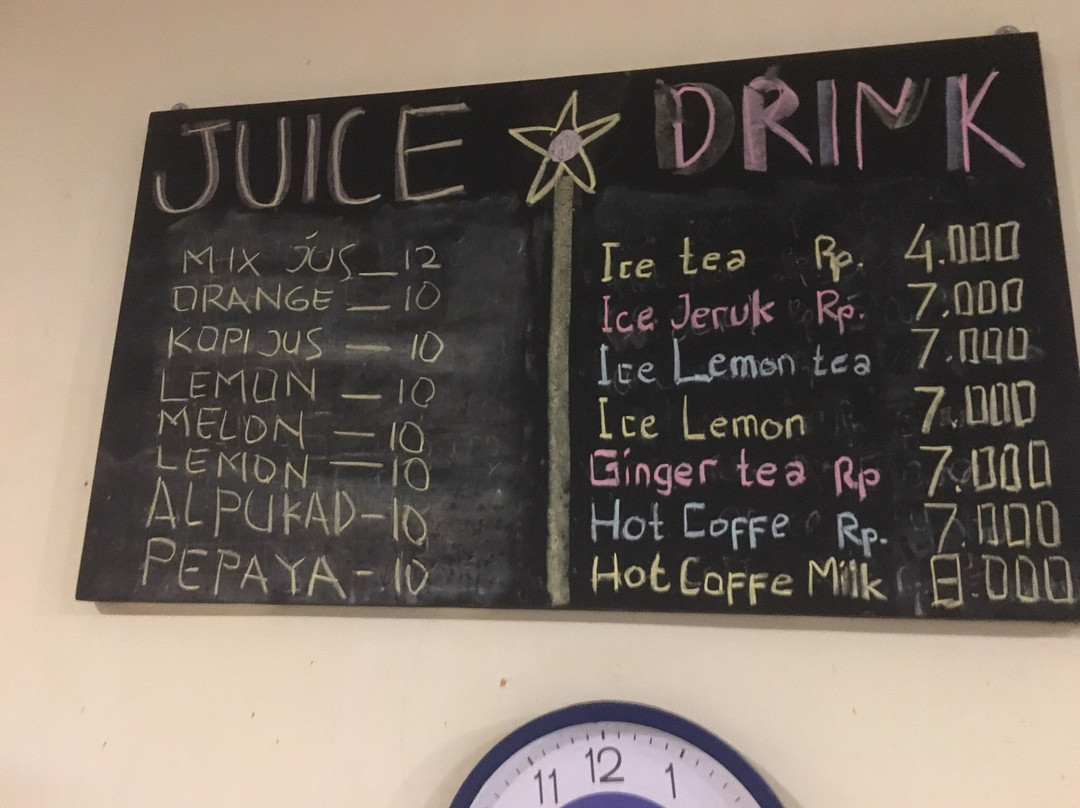 JUICE
MIX JUS — 12
ORANGE — 10
KOPI JUS — 10
LEMON — 10
MELON — 10
LEMON — 10
ALPUKAD - 10
PEPAYA - 10
DRINK
Ice tea Rp. 4.000
Ice Jeruk Rp. 7.000
Ice Lemon tea 7.000
Ice Lemon 7.000
Ginger tea Rp 7.000
Hot Coffe Rp. 7.000
Hot Coffe Milk 8.000
11 12 1